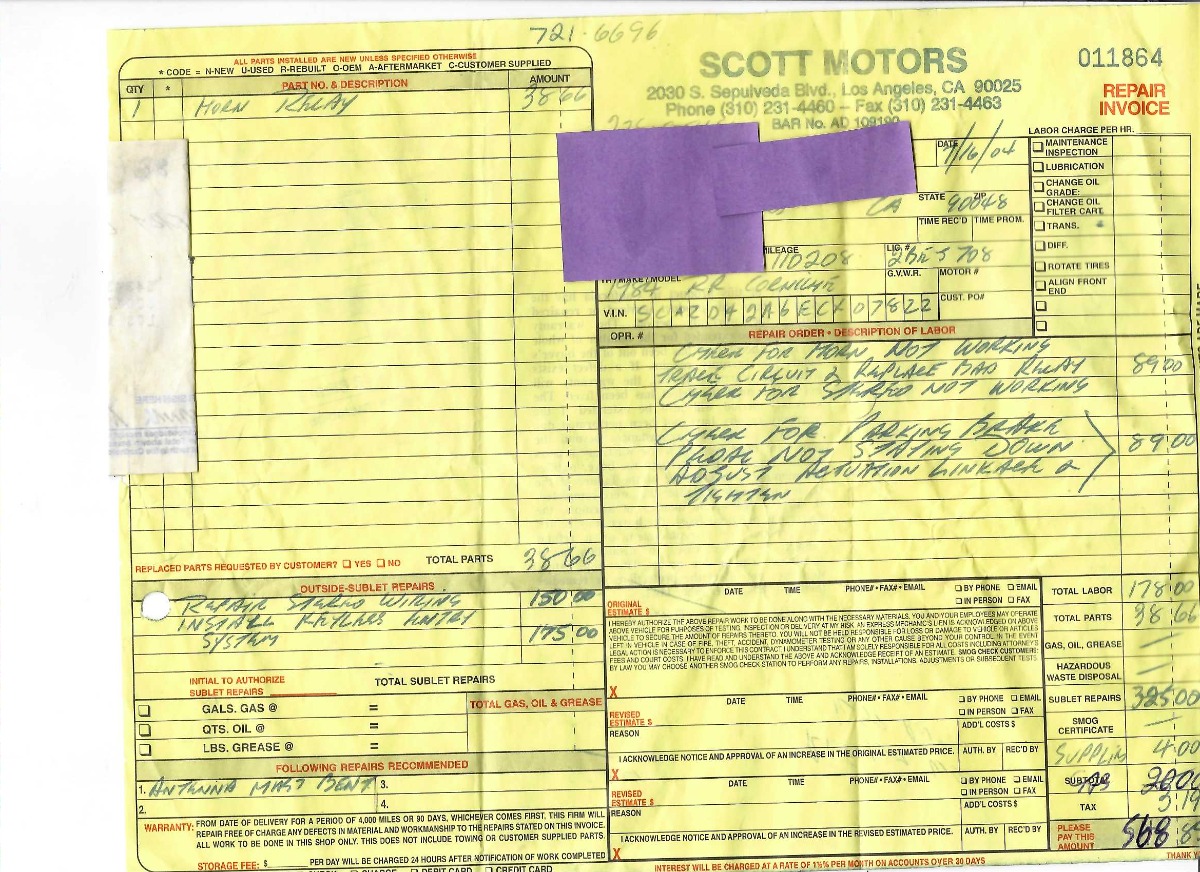 721-6696
ALL PARTS INSTALLED ARE NEW UNLESS SPECIFIED OTHERWISE
* CODE = N-NEW U-USED R-REBUILT O-OEM A-AFTERMARKET C-CUSTOMER SUPPLIED
QTY * PART NO. & DESCRIPTION AMOUNT
1 HORN RELAY 38 66
REPLACED PARTS REQUESTED BY CUSTOMER? YES NO TOTAL PARTS 38 66
OUTSIDE-SUBLET REPAIRS
REPAIR STEREO WIRING 150 00
INSTALL KEYLESS ENTRY
SYSTEM 175 00
INITIAL TO AUTHORIZE
SUBLET REPAIRS
TOTAL SUBLET REPAIRS
TOTAL GAS, OIL & GREASE
GALS. GAS @ =
QTS. OIL @ =
LBS. GREASE @ =
FOLLOWING REPAIRS RECOMMENDED
1. ANTENNA MAST BENT 3.
2. 4.
WARRANTY: FROM DATE OF DELIVERY FOR A PERIOD OF 4,000 MILES OR 90 DAYS, WHICHEVER COMES FIRST, THIS FIRM WILL
REPAIR FREE OF CHARGE ANY DEFECTS IN MATERIAL AND WORKMANSHIP TO THE REPAIRS STATED ON THIS INVOICE.
ALL WORK TO BE DONE IN THIS SHOP ONLY. THIS DOES NOT INCLUDE TOWING OR CUSTOMER SUPPLIED PARTS.
STORAGE FEE: $ PER DAY WILL BE CHARGED 24 HOURS AFTER NOTIFICATION OF WORK COMPLETED
CHARGE DEBIT CARD CREDIT CARD
SCOTT MOTORS
2030 S. Sepulveda Blvd., Los Angeles, CA 90025
Phone (310) 231-4460 – Fax (310) 231-4463
BAR No. AD 109190
011864
REPAIR
INVOICE
DATE 7/16/04
STATE CA ZIP 90048
TIME REC'D TIME PROM.
MILEAGE 110208 LIC.#
G.V.W.R. MOTOR #
YR / MAKE / MODEL 1984 RR CORNICHE
V.I.N. SCAZD42A6ECX07822 CUST. PO#
LABOR CHARGE PER HR.
MAINTENANCE INSPECTION
LUBRICATION
CHANGE OIL GRADE:
CHANGE OIL FILTER CART.
TRANS.
DIFF.
ROTATE TIRES
ALIGN FRONT END
OPR. # REPAIR ORDER • DESCRIPTION OF LABOR
CHECK FOR HORN NOT WORKING
TRACE CIRCUIT & REPLACE BAD RELAY 89 00
CHECK FOR STEREO NOT WORKING
CHECK FOR PARKING BRAKE
PEDAL NOT STAYING DOWN 89 00
ADJUST ACTUATION LINKAGE &
TIGHTEN
ORIGINAL ESTIMATE $ DATE TIME PHONE# • FAX# • EMAIL BY PHONE EMAIL IN PERSON FAX
I HEREBY AUTHORIZE THE ABOVE REPAIR WORK TO BE DONE ALONG WITH THE NECESSARY MATERIALS. YOU AND YOUR EMPLOYEES MAY OPERATE
ABOVE VEHICLE FOR PURPOSES OF TESTING, INSPECTION OR DELIVERY AT MY RISK. AN EXPRESS MECHANIC'S LIEN IS ACKNOWLEDGED ON ABOVE
VEHICLE TO SECURE THE AMOUNT OF REPAIRS THERETO. YOU WILL NOT BE HELD RESPONSIBLE FOR LOSS OR DAMAGE TO VEHICLE OR ARTICLES
LEFT IN VEHICLE IN CASE OF FIRE, THEFT, ACCIDENT, DYNAMOMETER TESTING OR ANY OTHER CAUSE BEYOND YOUR CONTROL. IN THE EVENT
LEGAL ACTION IS NECESSARY TO ENFORCE THIS CONTRACT I UNDERSTAND THAT I AM SOLELY RESPONSIBLE FOR ALL COSTS INCLUDING ATTORNEY'S
FEES AND COURT COSTS. I HAVE READ AND UNDERSTAND THE ABOVE AND ACKNOWLEDGE RECEIPT OF AN ESTIMATE. SMOG CHECK CUSTOMER:
BY LAW YOU MAY CHOOSE ANOTHER SMOG CHECK STATION TO PERFORM ANY REPAIRS, INSTALLATIONS, ADJUSTMENTS OR SUBSEQUENT TESTS
X
REVISED ESTIMATE $ DATE TIME PHONE# • FAX# • EMAIL BY PHONE EMAIL IN PERSON FAX
REASON ADD'L COSTS $
I ACKNOWLEDGE NOTICE AND APPROVAL OF AN INCREASE IN THE ORIGINAL ESTIMATED PRICE. AUTH. BY REC'D BY
X
REVISED ESTIMATE $ DATE TIME PHONE# • FAX# • EMAIL BY PHONE EMAIL IN PERSON FAX
REASON ADD'L COSTS $
I ACKNOWLEDGE NOTICE AND APPROVAL OF AN INCREASE IN THE REVISED ESTIMATED PRICE. AUTH. BY REC'D BY
X
TOTAL LABOR 178.00
TOTAL PARTS 38 66
GAS, OIL, GREASE —
HAZARDOUS WASTE DISPOSAL —
SUBLET REPAIRS 325.00
SMOG CERTIFICATE —
SUPPLIES 4.00
SUBTOTAL
TAX
PLEASE PAY THIS AMOUNT 568
INTEREST WILL BE CHARGED AT A RATE OF 1½% PER MONTH ON ACCOUNTS OVER 30 DAYS